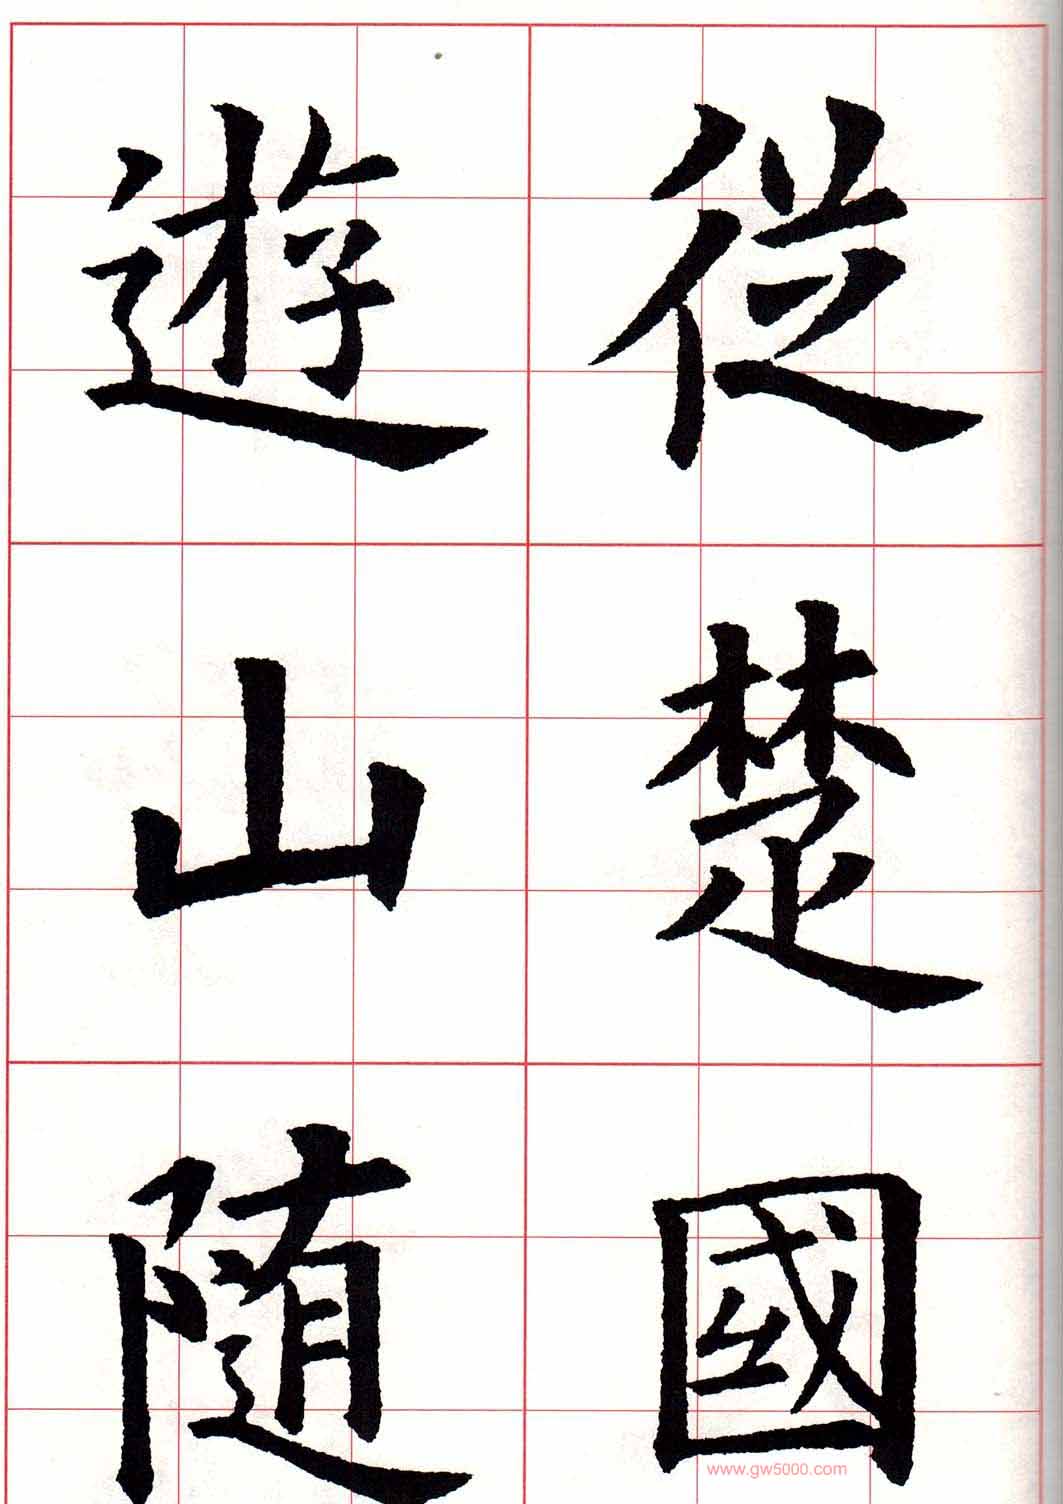 従楚國
遊山随
www.gw5000.com